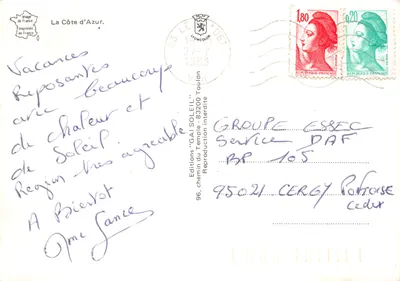 La Côte d'Azur.
Vacances
Reposantes
avec beaucoup
de chaleur et
de Soleil.
Region très agreable
A Bientot
Editions "GAI SOLEIL"
96, chemin du Temple - 83200 Toulon
Reproduction interdite
1,80
0,20
GROUPE ESSEC
Service DAF
BP 105
95021 CERGY PONTOISE
Cedex